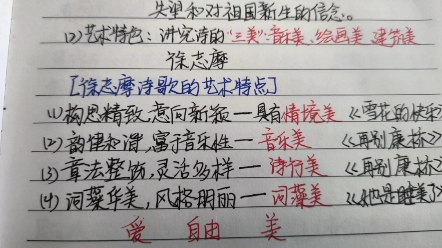 失望和对祖国新生的信念。
(2)艺术特色:讲究诗的"三美":音乐美、绘画美、建筑美
徐志摩
[徐志摩诗歌的艺术特点]
(1)构思精致,意向新颖一具有情境美《雪花的快乐
(2)韵律和谐,富于音乐性一音乐美《再别康桥》
(3)章法整饬,灵活多样一诗行美《再别康桥》
(4)词藻华美,风格明丽一词藻美《她是睡着了
爱 自由 美